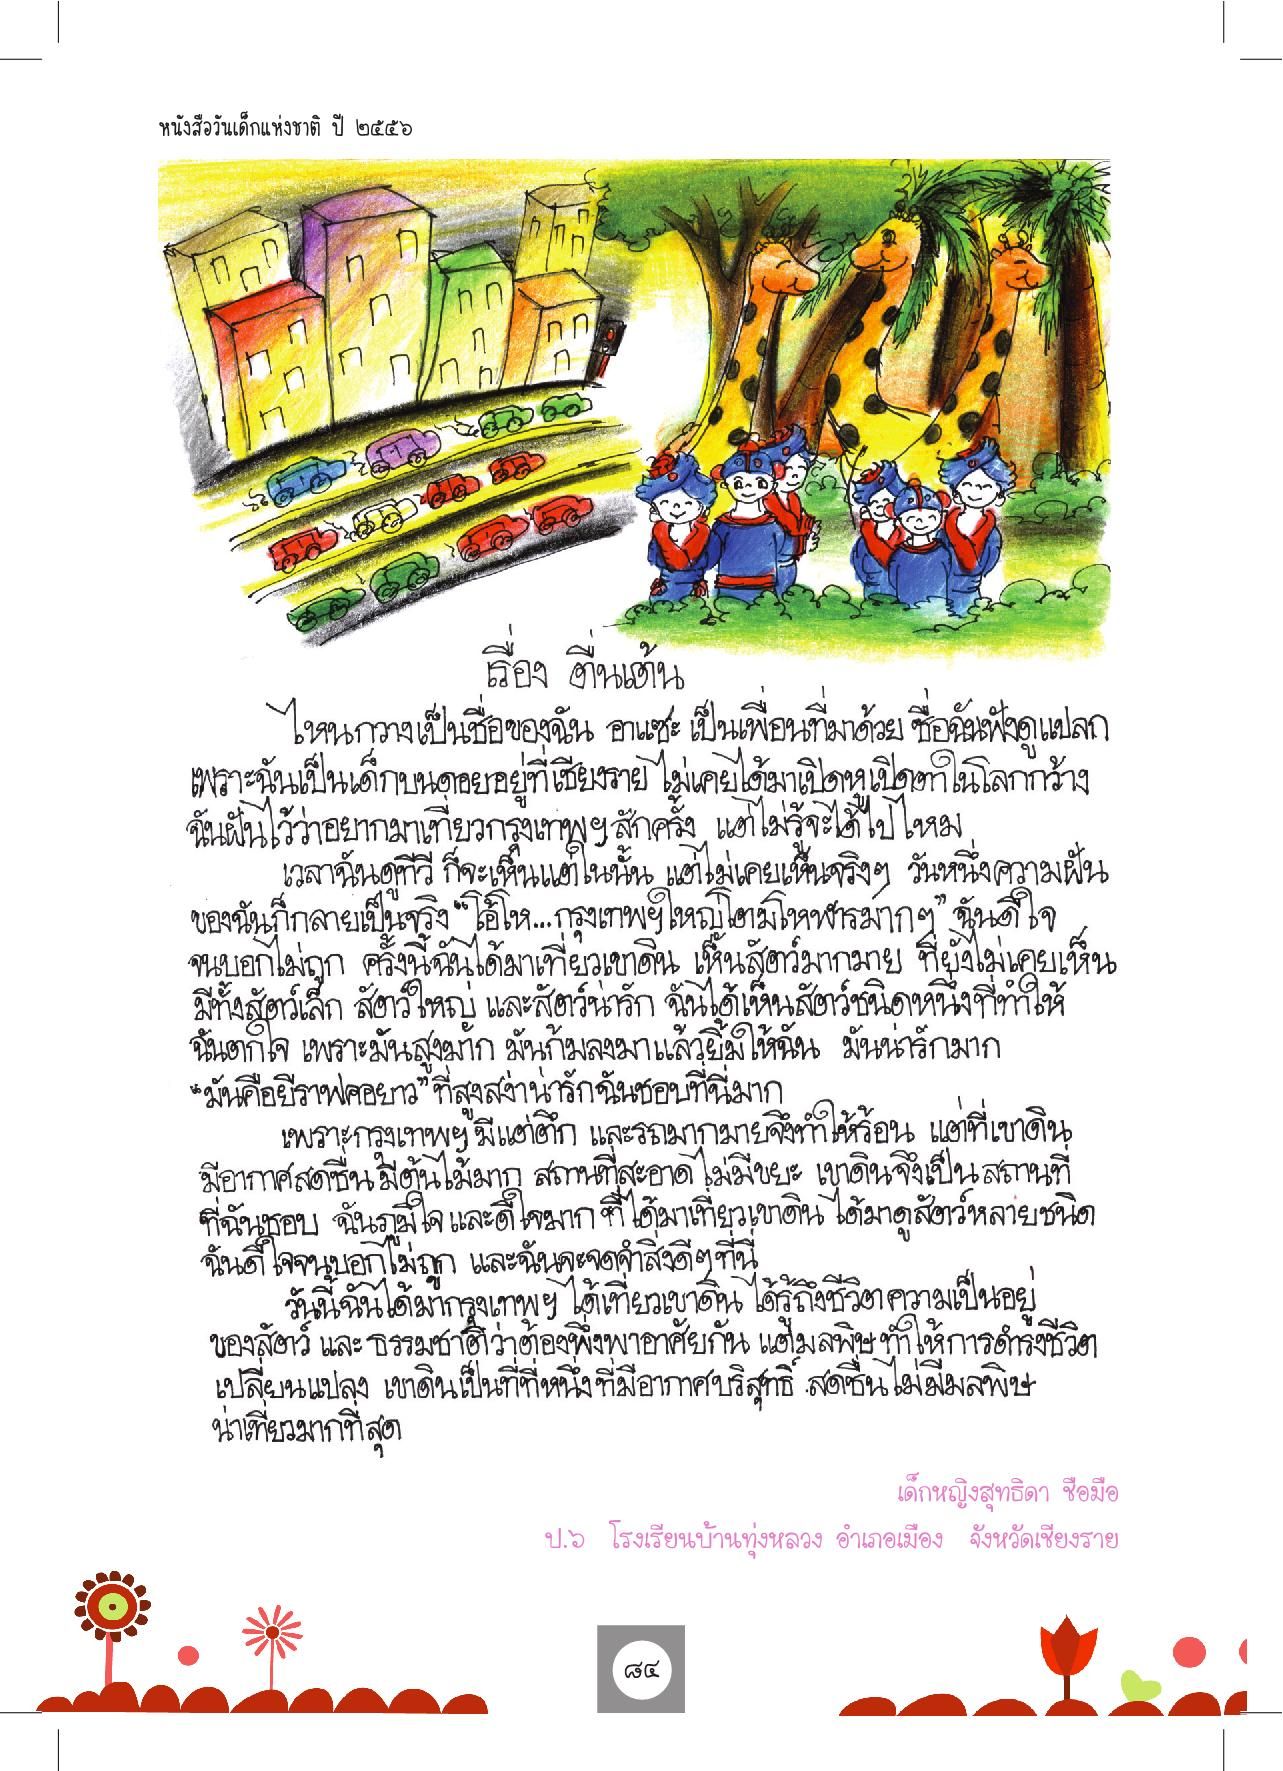 หนังสือวันเด็กแห่งชาติ ปี ๒๕๕๖
เรื่อง ตื่นเต้น
ไหนกวางเป็นชื่อของฉัน อาแซะ เป็นเพื่อนที่มาด้วย ชื่อฉันฟังดูแปลก
เพราะฉันเป็นเด็กบนดอยอยู่ที่เชียงราย ไม่เคยได้มาเปิดหูเปิดตาในโลกกว้าง
ฉันฝันไว้ว่าอยากมาเที่ยวกรุงเทพฯสักครั้ง แต่ไม่รู้จะได้ไปไหม
เวลาฉันดูทีวี ก็จะเห็นแต่ในนั้น แต่ไม่เคยเห็นจริงๆ วันหนึ่งความฝัน
ของฉันก็กลายเป็นจริง "โอ้โห...กรุงเทพฯใหญ่โตมโหฬารมากๆ" ฉันดีใจ
จนบอกไม่ถูก ครั้งนี้ฉันได้มาเที่ยวเขาดิน เห็นสัตว์มากมาย ที่ยังไม่เคยเห็น
มีทั้งสัตว์เล็ก สัตว์ใหญ่ และสัตว์น่ารัก ฉันได้เห็นสัตว์ชนิดหนึ่งที่ทำให้
ฉันตกใจ เพราะมันสูงมาก มันก้มลงมาแล้วยิ้มให้ฉัน มันน่ารักมาก
"มันคือยีราฟคอยาว" ที่สูงสง่าน่ารักฉันชอบที่นี่มาก
เพราะกรุงเทพฯมีแต่ตึก และรถมากมายจึงทำให้ร้อน แต่ที่เขาดิน
มีอากาศสดชื่น มีต้นไม้มาก สถานที่สะอาด ไม่มีขยะ เขาดินจึงเป็นสถานที่
ที่ฉันชอบ ฉันภูมิใจและดีใจมาก ที่ได้มาเที่ยวเขาดิน ได้มาดูสัตว์หลายชนิด
ฉันดีใจจนบอกไม่ถูก และฉันจะจดจำสิ่งดีๆที่นี่
วันนี้ฉันได้มากรุงเทพฯ ได้เที่ยวเขาดิน ได้รู้ถึงชีวิตความเป็นอยู่
ของสัตว์ และ ธรรมชาติว่าต้องพึ่งพาอาศัยกัน แต่มลพิษทำให้การดำรงชีวิต
เปลี่ยนแปลง เขาดินเป็นที่ที่หนึ่งที่มีอากาศบริสุทธิ์ สดชื่นไม่มีมลพิษ
น่าเที่ยวมากที่สุด
เด็กหญิงสุทธิดา ชือมือ
ป.๖ โรงเรียนบ้านทุ่งหลวง อำเภอเมือง จังหวัดเชียงราย
๘๔